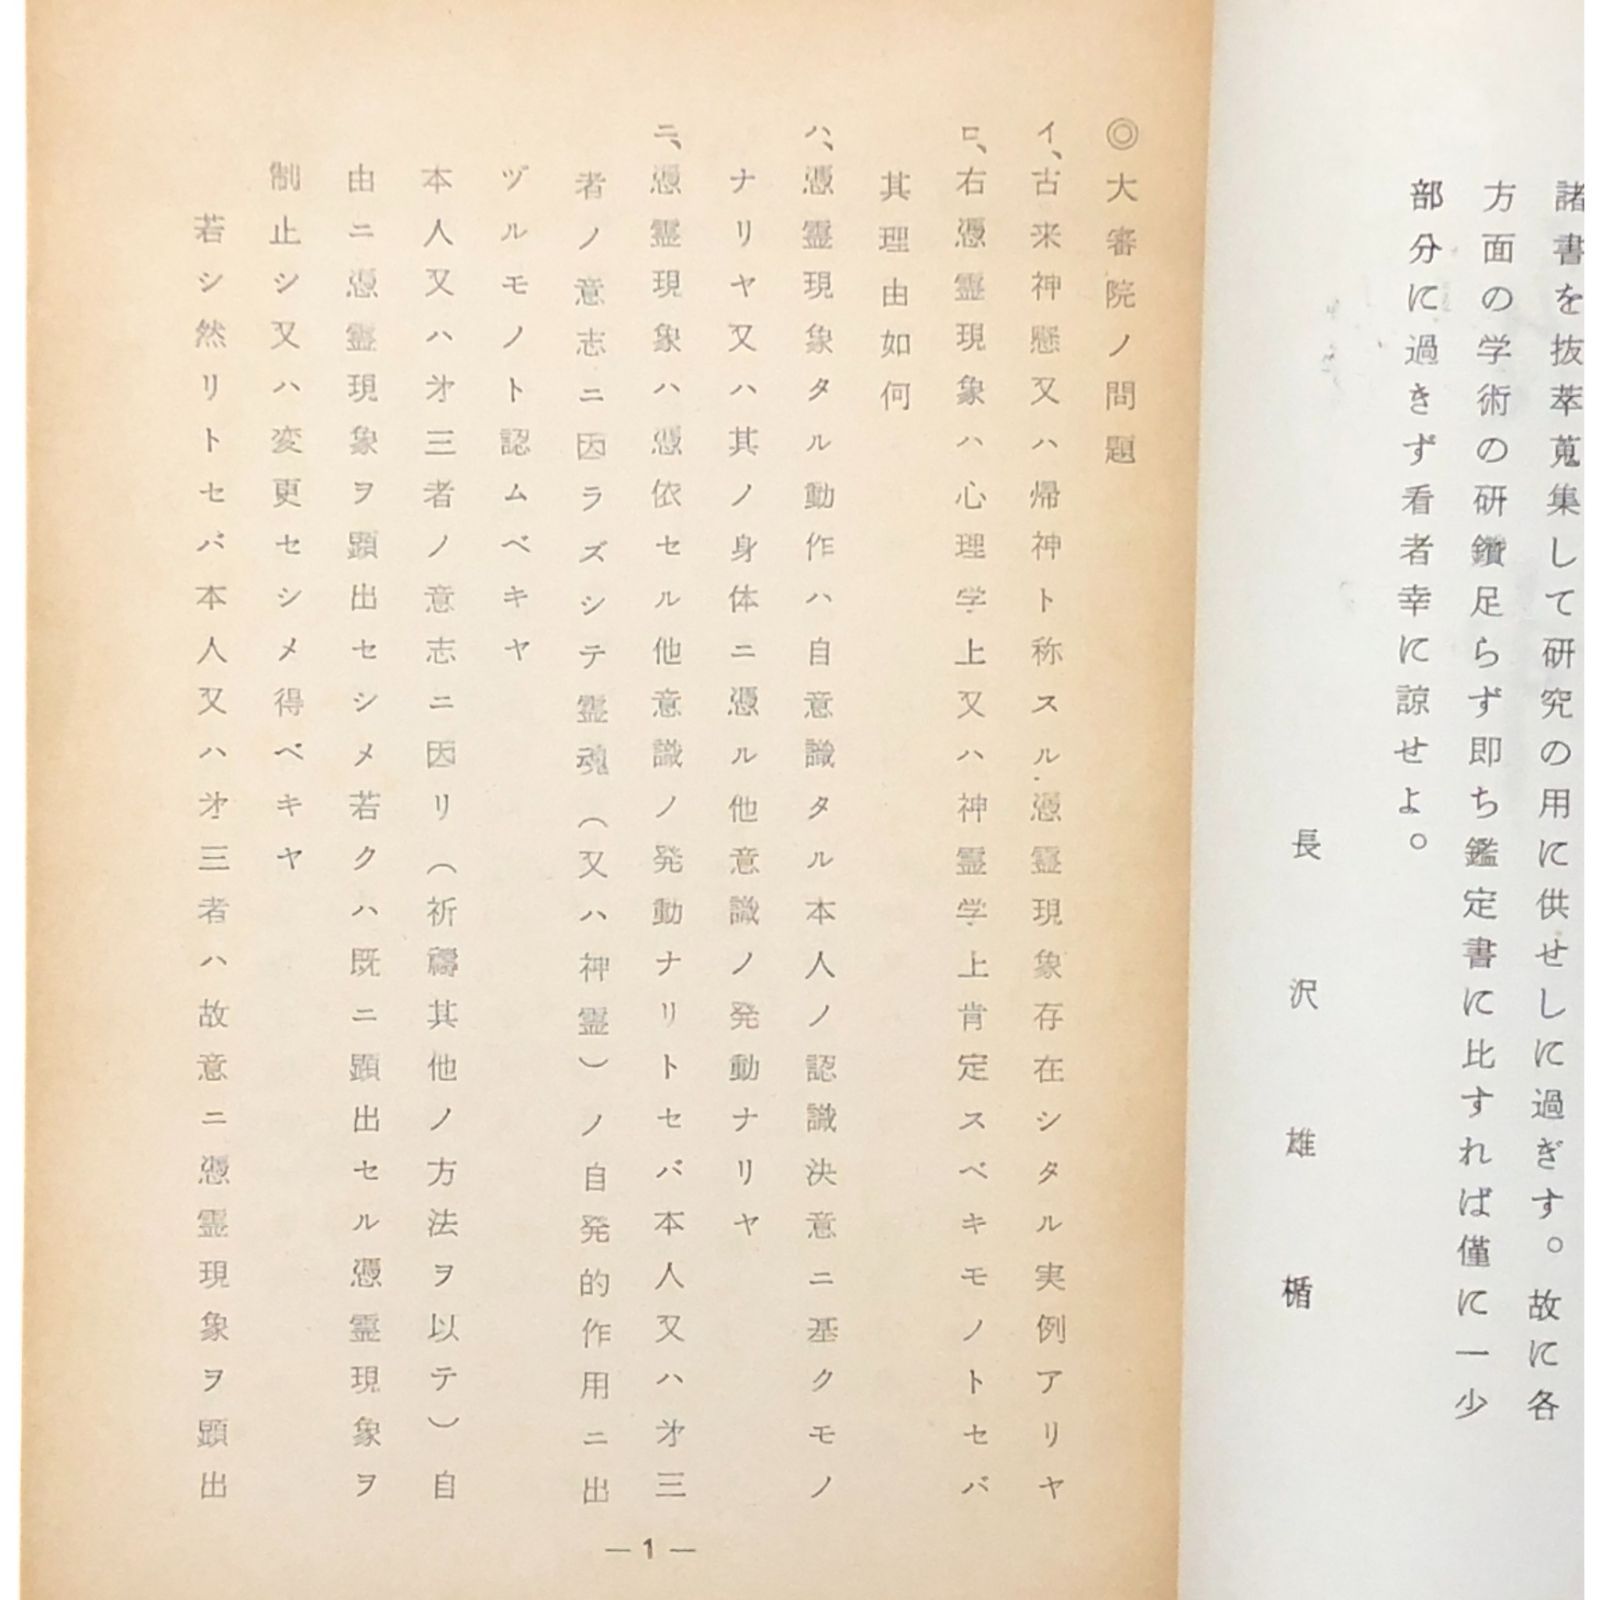 諸書を抜萃蒐集して研究の用に供せしに過ぎす。故に各
方面の学術の研鑽足らず即ち鑑定書に比すれば僅に一少
部分に過きず看者幸に諒せよ。
長沢雄楯
◎大審院ノ問題
イ、古来神懸又ハ帰神ト称スル憑霊現象存在シタル実例アリヤ
ロ、右憑霊現象ハ心理学上又ハ神霊学上肯定スベキモノトセバ
其理由如何
ハ、憑霊現象タル動作ハ自意識タル本人ノ認識決意ニ基クモノ
ナリヤ又ハ其ノ身体ニ憑ル他意識ノ発動ナリヤ
ニ、憑霊現象ハ憑依セル他意識ノ発動ナリトセバ本人又ハ才三
者ノ意志ニ因ラズシテ霊魂（又ハ神霊）ノ自発的作用ニ出
ヅルモノト認ムベキヤ
本人又ハ才三者ノ意志ニ因リ（祈禱其他ノ方法ヲ以テ）自
由ニ憑霊現象ヲ顕出セシメ若クハ既ニ顕出セル憑霊現象ヲ
制止シ又ハ変更セシメ得ベキヤ
若シ然リトセバ本人又ハ才三者ハ故意ニ憑霊現象ヲ顕出
— 1 —